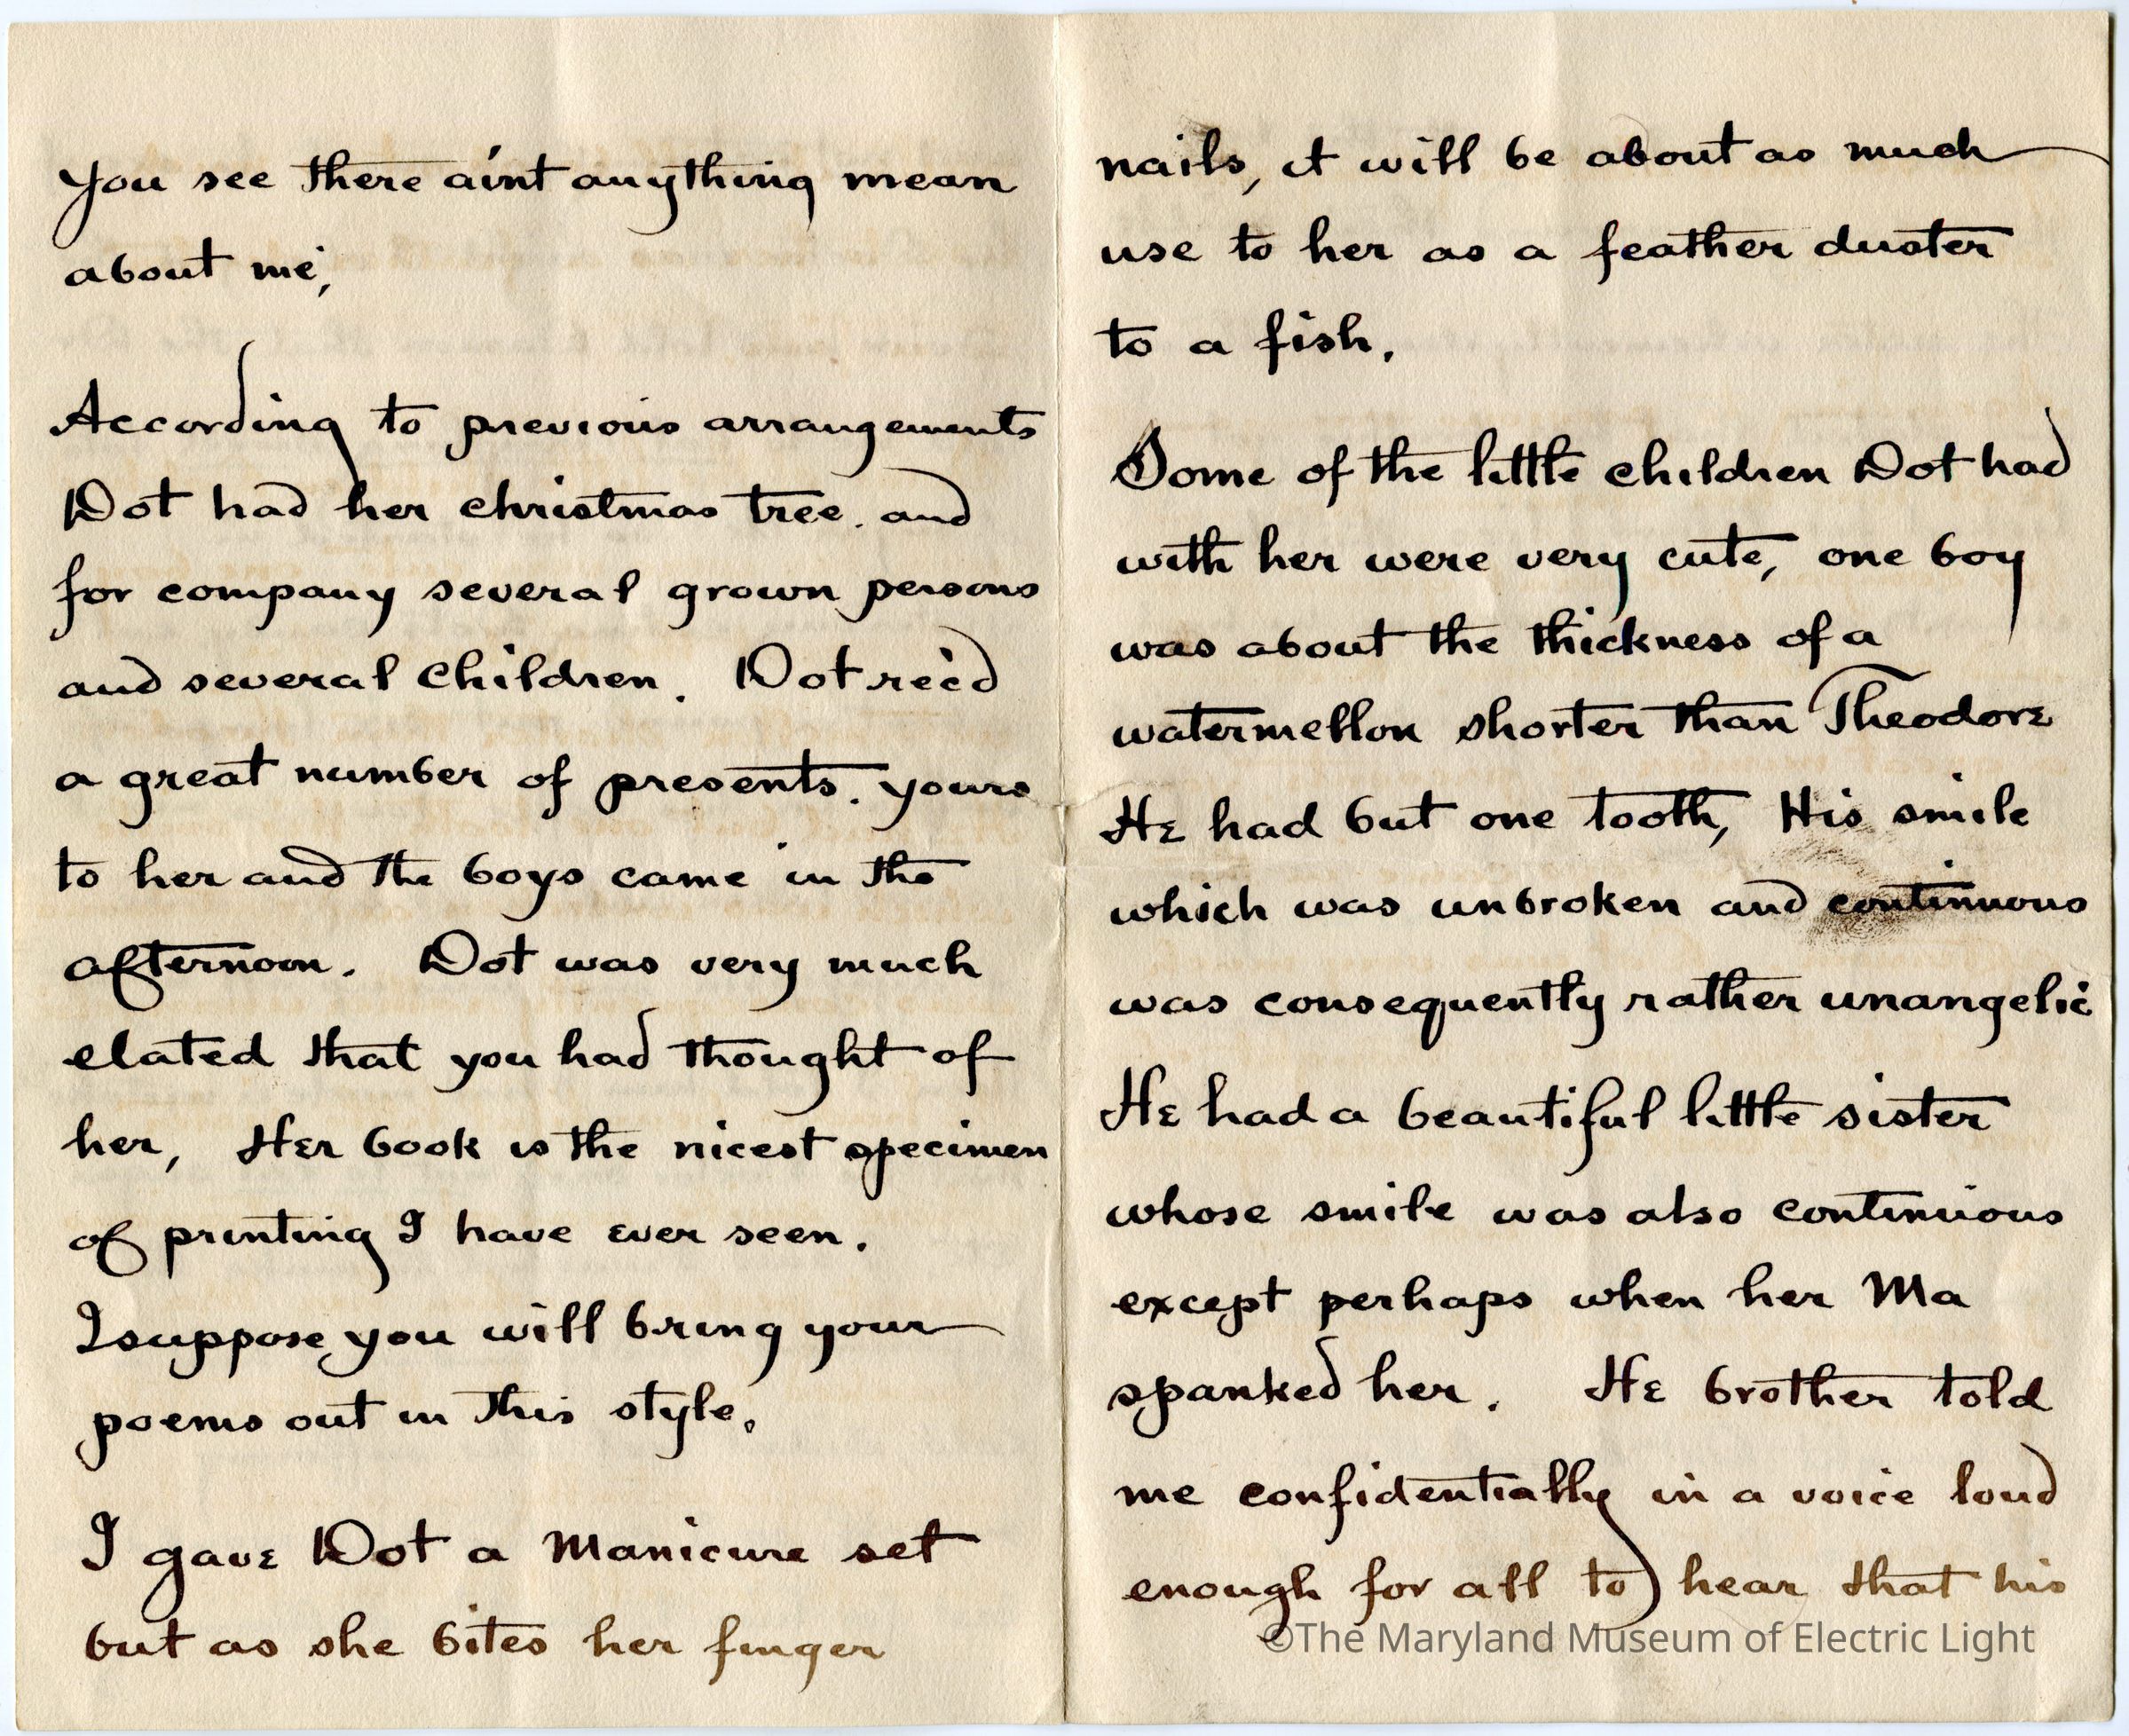 You see there aint anything mean
about me,
According to previous arrangements
Dot had her christmas tree. and
for company several grown persons
and several children. Dot rec'd
a great number of presents. yours
to her and the boys came in the
afternoon. Dot was very much
elated that you had thought of
her, Her book is the nicest specimen
of printing I have ever seen.
I suppose you will bring your
poems out in this style.
I gave Dot a Manicure set
but as she bites her finger
nails, it will be about as much
use to her as a feather duster
to a fish.
Some of the little children Dot had
with her were very cute, one boy
was about the thickness of a
watermellon shorter than Theodore
He had but one tooth, His smile
which was unbroken and continuous
was consequently rather unangelic
He had a beautiful little sister
whose smile was also continuious
except perhaps when her Ma
spanked her. He brother told
me confidentially in a voice loud
enough for all to hear that his
©The Maryland Museum of Electric Light